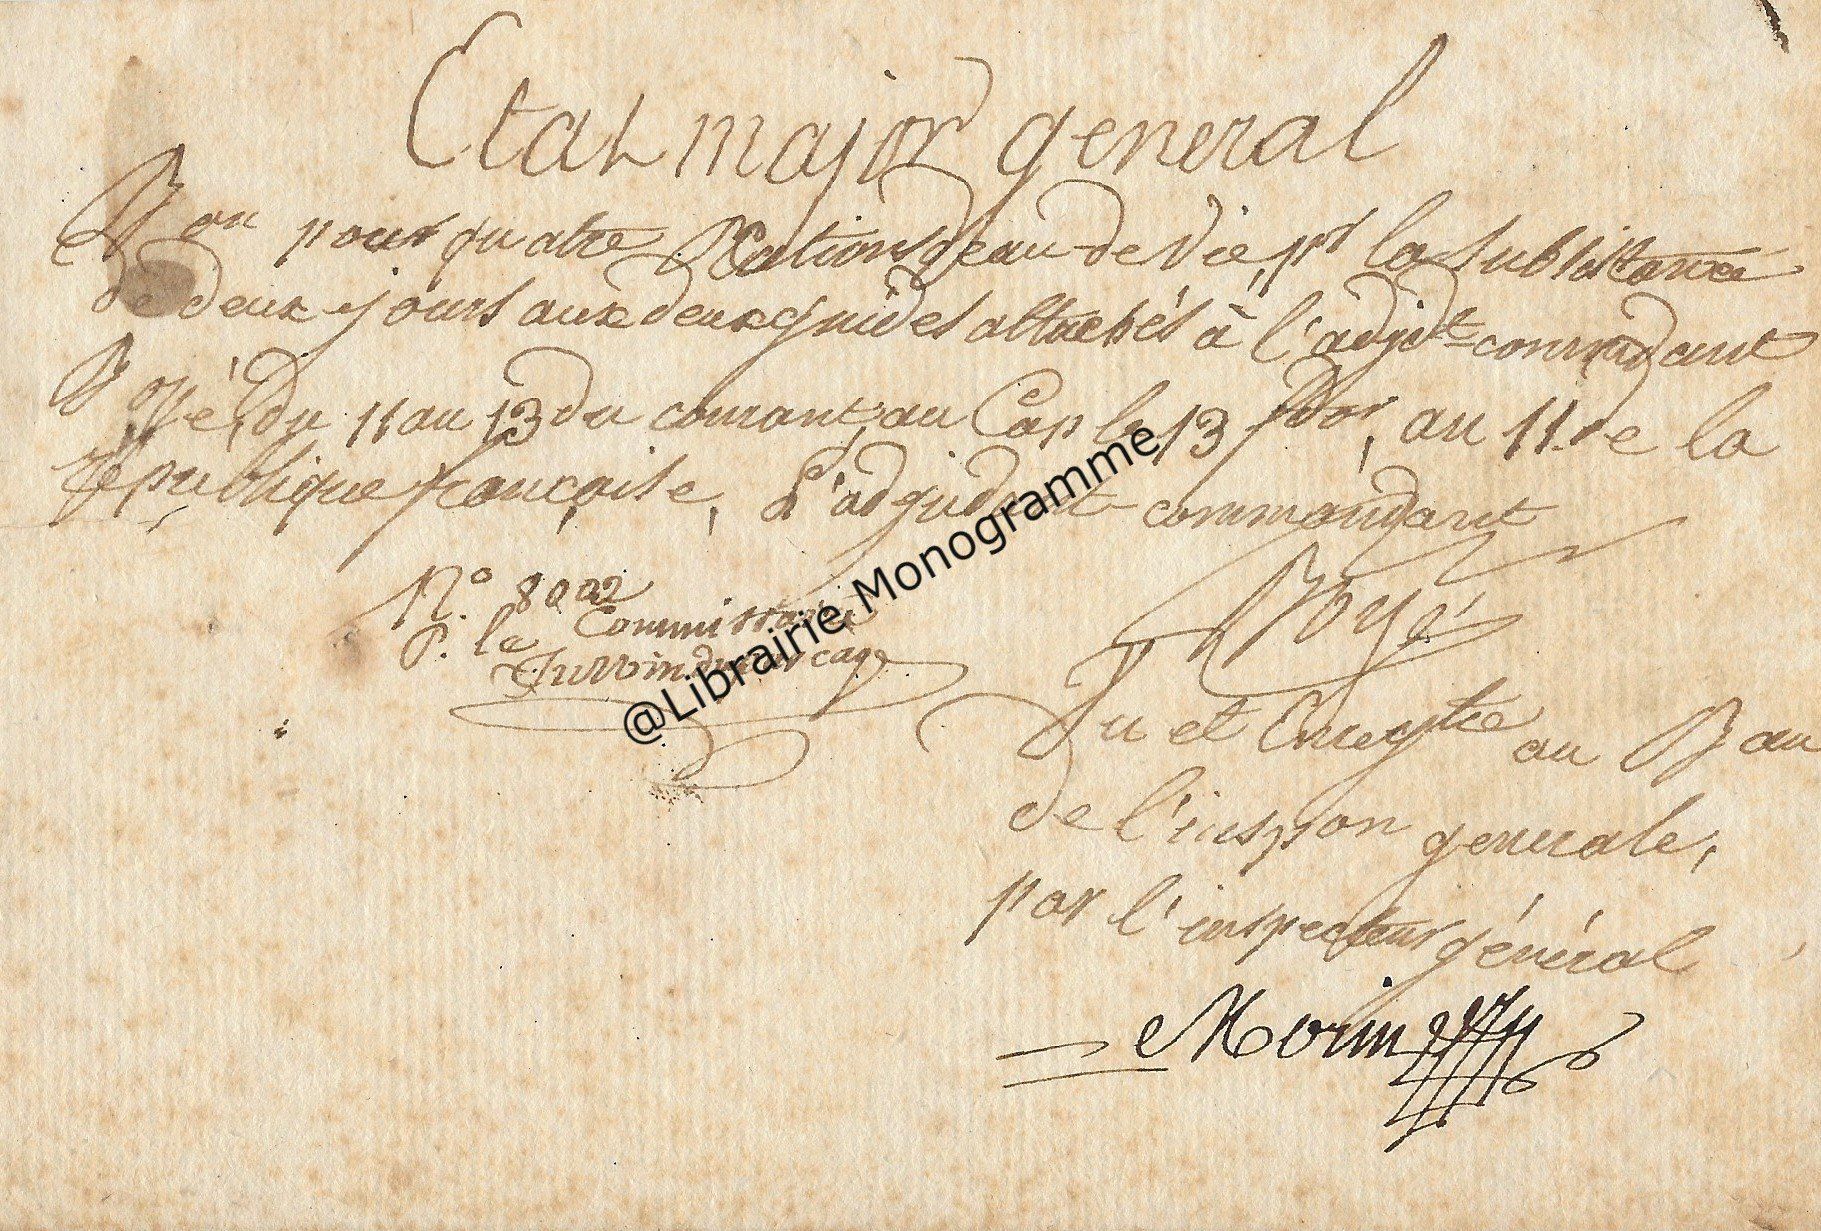 Etat major general
Bon pour quatre Rations d'eau-de-Vie, pr la subsistance
de deux jours aux deux guides attachés à l'adjdt-commandant
Boyé, du 11 au 13 du courant, au Cap le 13 fdor, an 11 de la
république française, L'adjudant-commandant
Boyé
N.º 8022
P. le Commissaire
Vu et Enregtré au Bau
de l'inspson generale,
par l'inspecteur général
Morin
@Librairie Monogramme